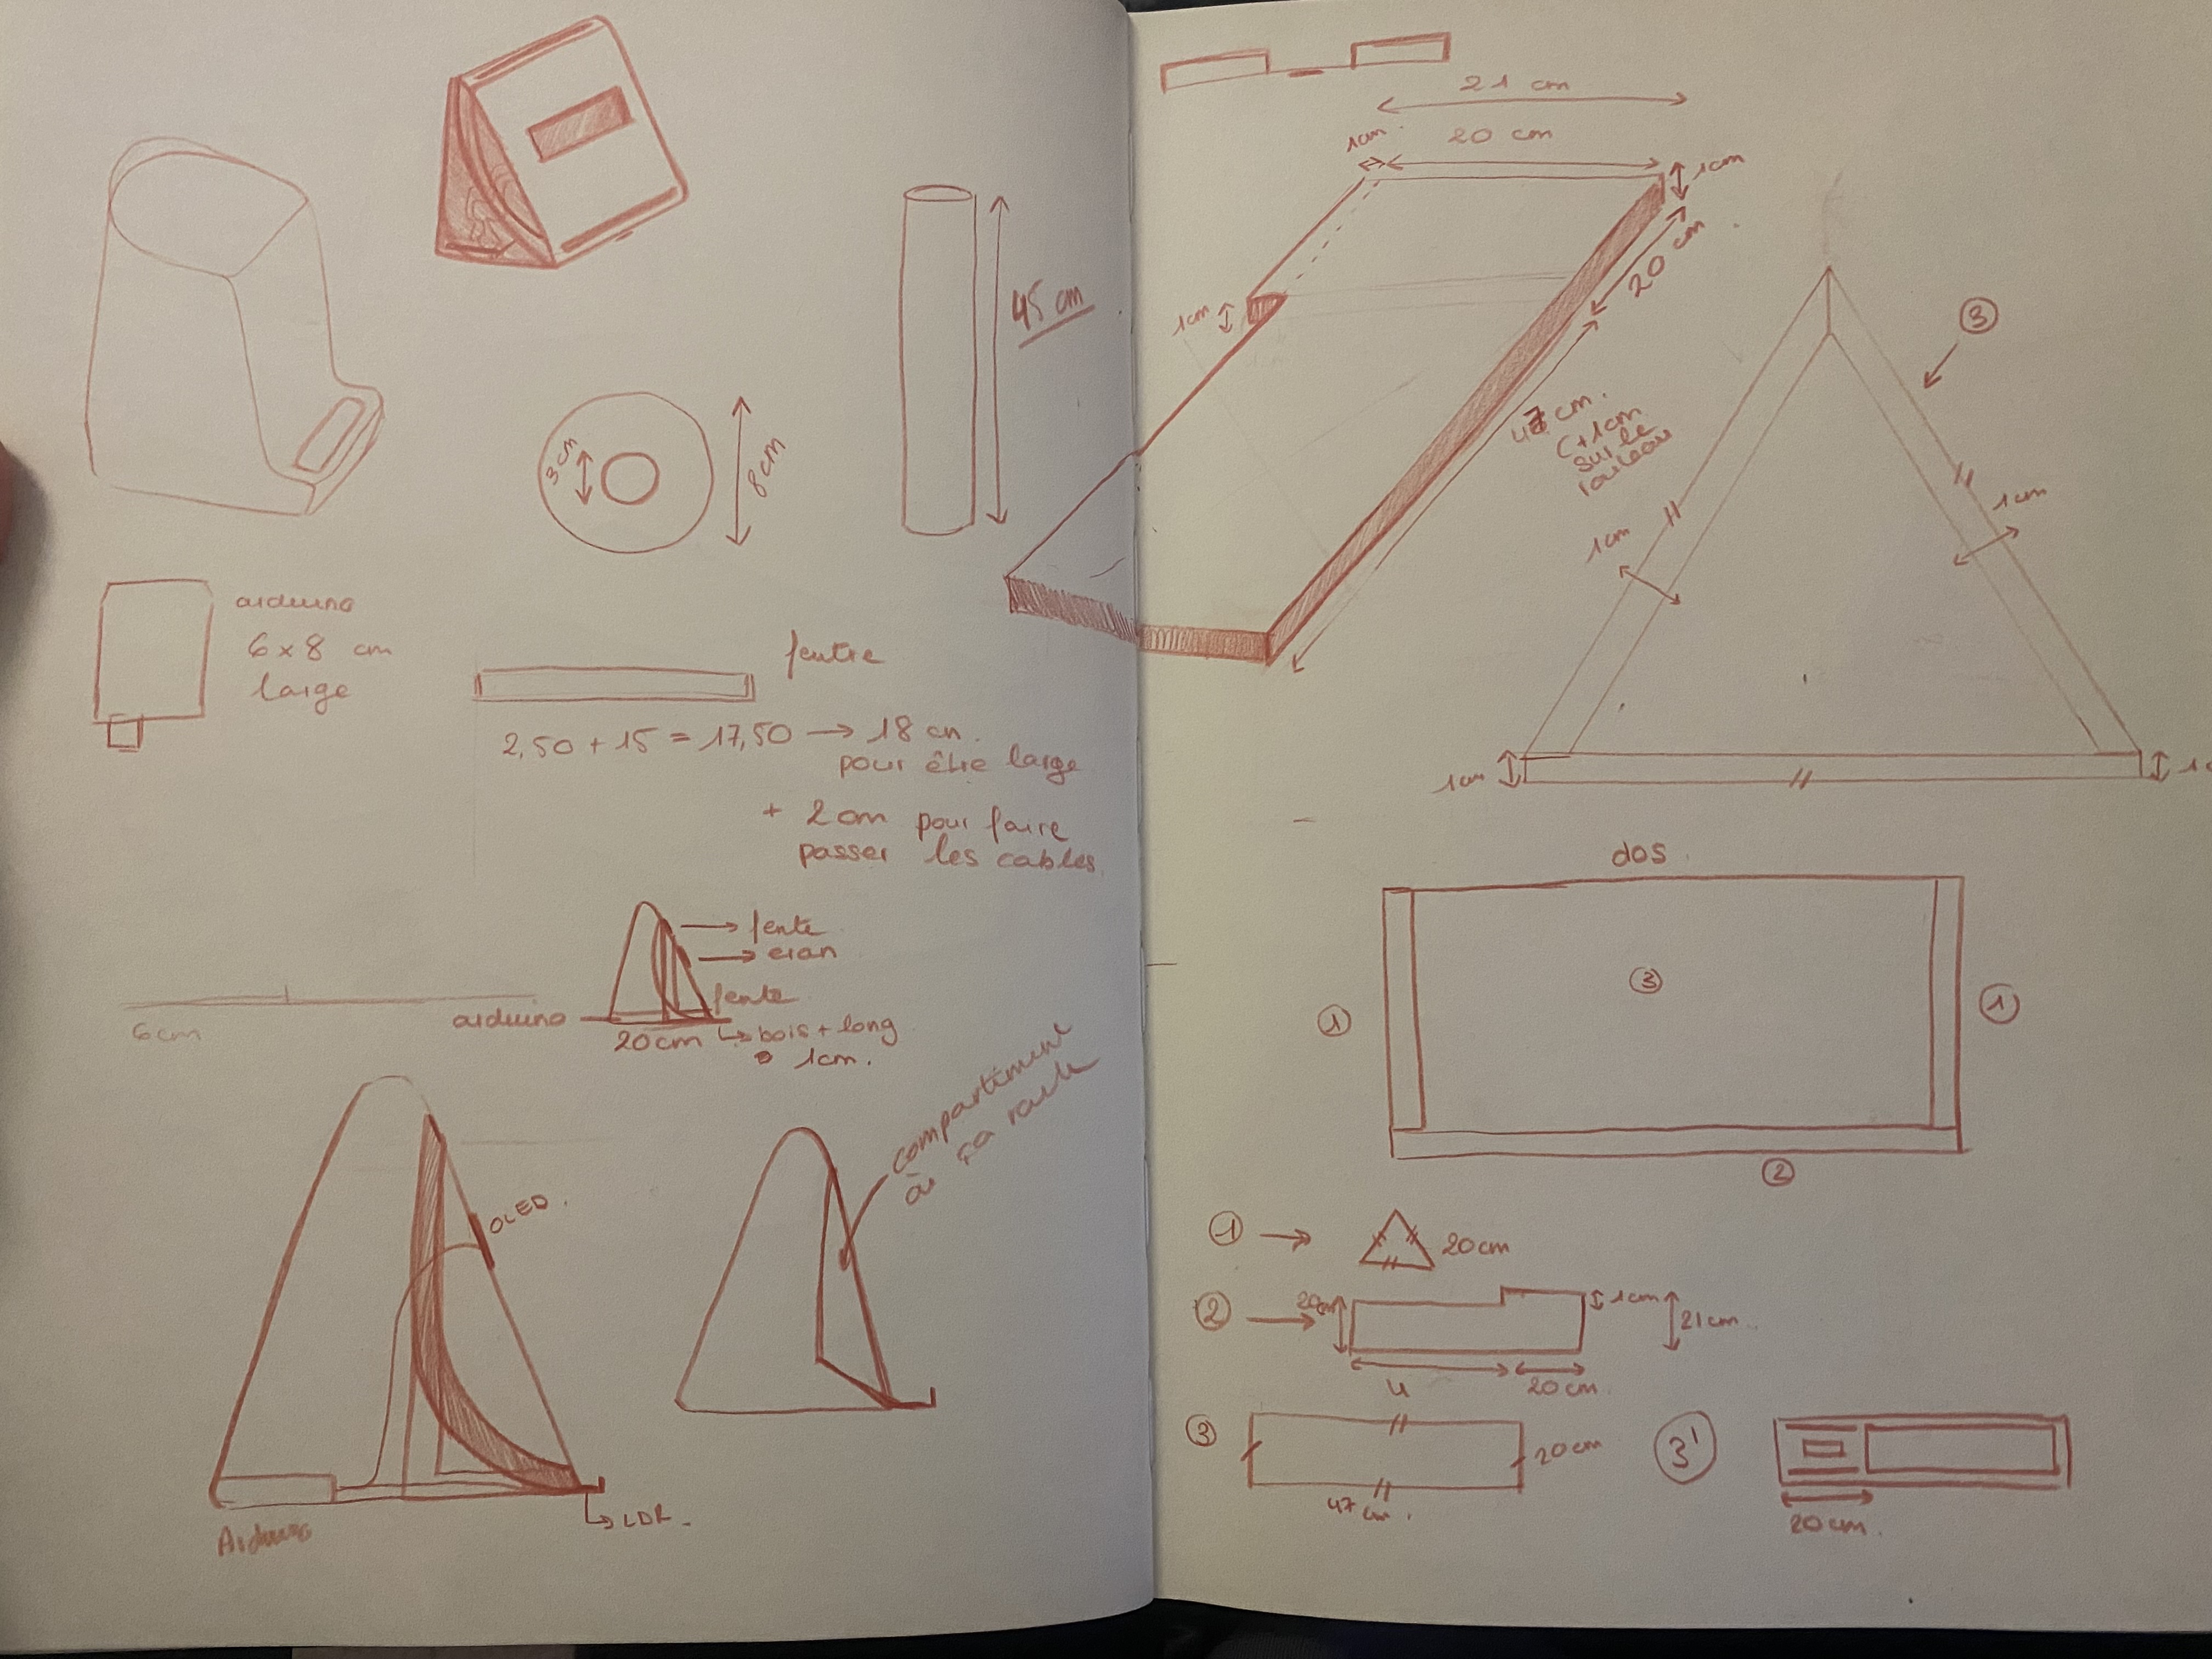 45 cm
3 cm
8 cm
arduino
6 x 8 cm
large
fentre
2,50 + 15 = 17,50 → 18 cm.
pour être large
+ 2 cm pour faire
passer les cables.
→ fente
→ ecran
fente
arduino
20 cm
↳ bois + long
1 cm.
6 cm
compartiment
OLED.
Arduino
↳ LDR.
21 cm
1 cm.
20 cm
1 cm
20 cm
1 cm
47 cm.
(+1cm
sur le
③
1 cm
1 cm
1 cm
dos
③
①
①
②
① →
20 cm
② →
20 cm
1 cm
21 cm
20 cm
③
20 cm
47 cm.
③'
20 cm.